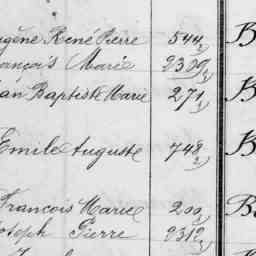 ugène René Pierre 544 B
rançois Marie 2309
ean Baptiste Marie 271 B
Emile Auguste 748 B
François Marie 209 B
oseph Pierre 2312